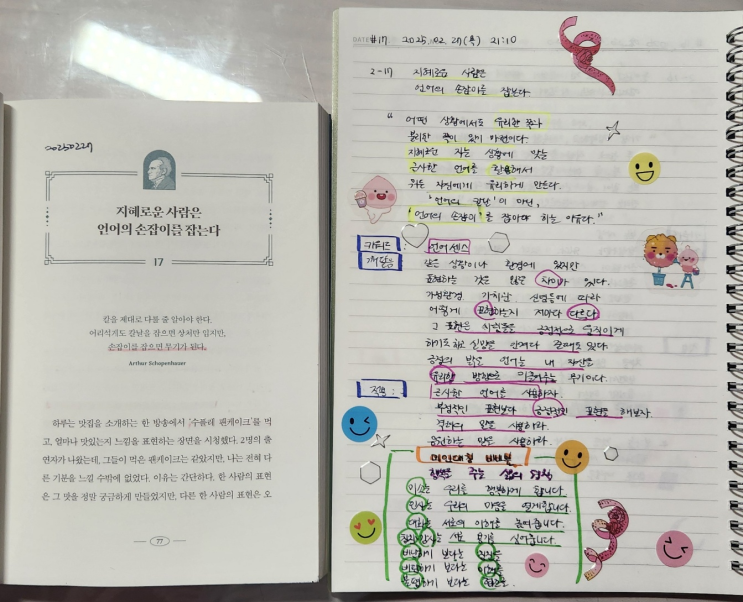 20250227
지혜로운 사람은
언어의 손잡이를 잡는다
17
칼을 제대로 다룰 줄 알아야 한다.
어리석게도 칼날을 잡으면 상처만 입지만,
손잡이를 잡으면 무기가 된다.
Arthur Schopenhauer
하루는 맛집을 소개하는 한 방송에서 '수플레 팬케이크'를 먹
고, 얼마나 맛있는지 느낌을 표현하는 장면을 시청했다. 2명의 출
연자가 나왔는데, 그들이 먹은 팬케이크는 같았지만, 나는 전혀 다
른 기분을 느낄 수밖에 없었다. 이유는 간단하다. 한 사람의 표현
은 그 맛을 정말 궁금하게 만들었지만, 다른 한 사람의 표현은 오
77
DATE
#17 2025.02.27(목) 21:10
2-17 지혜로운 사람은
언어의 손잡이를 잡는다
" 어떤 상황에서도 유리한 쪽과
불리한 쪽이 있기 마련이다.
지혜로운 자는 상황에 맞는
근사한 언어를 활용해서
위는 자신에게 유리하게 만든다.
'언어의 칼날'이 아닌,
'언어의 손잡이'를 잡아야 하는 이유다."
키워드 언어센스
깨달음 같은 상황이나 환경에 있지만
표현하는 것은 많은 차이가 있다.
가정환경 가치관 신념등에 따라
어떻게 표현하는지 저마다 다르다.
그 표현은 사람들을 긍정적으로 움직이게
하기도 하고 실망을 안겨다 줄때도 있다
긍정의 밝은 언어는 내 자신을
유리한 방향으로 이끌어주는 무기이다.
적용: 근사한 언어를 사용하자.
부정적인 표현보다 긍정적인 표현을 해보자.
격려의 말을 사용하라.
응원하는 말을 사용하라.
미인대칭 비비불
행복을 주는 삶의 명칭
미소는 우리를 행복하게 합니다.
인사는 우리의 마음을 열게합니다.
대화는 서로의 이해를 높여줍니다.
칭찬 감사는 서로 용기를 심어줍니다.
비난하기 보다는 칭찬을
비판하기 보다는 이해를
불평하기 보다는